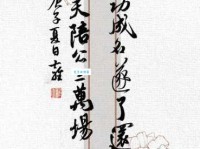 功成名遂了還
天陪公三萬場
庚子夏日